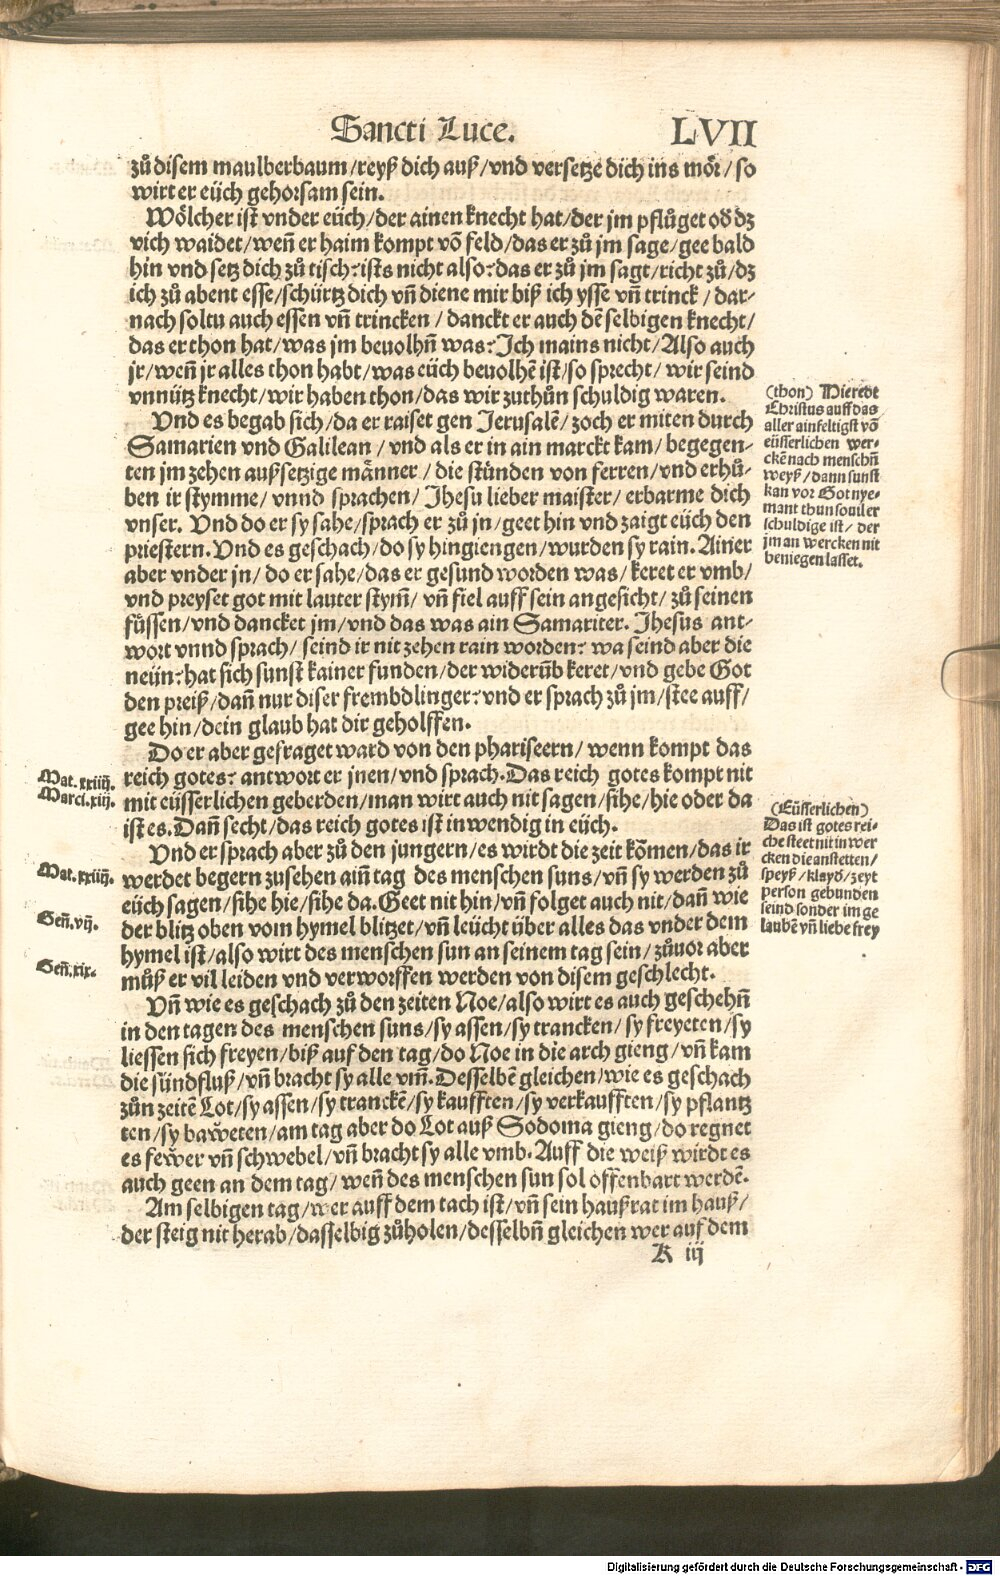 Sancti Luce. LVII
zů disem maulberbaum/reyß dich auß/vnd versetze dich ins mőr/so
wirt er eüch gehorsam sein.
Wőlcher ist vnder eüch/der ainen knecht hat/der jm pflůget od dz
vich waidet/weñ er haim kompt võ feld/das er zů jm sage/gee bald
hin vnd setz dich zů tisch? ists nicht also? das er zů jm sagt/richt zů/dz
ich zů abent esse/schürtz dich vñ diene mir biß ich ysse vñ trinck/dar-
nach soltu auch essen vñ trincken/danckt er auch dẽ selbigen knecht/
das er thon hat/was jm beuolhñ was? Ich mains nicht/Also auch
jr/weñ jr alles thon habt/was eüch beuolhẽ ist/so sprecht/wir seind
vnnütz knecht/wir haben thon/das wir zuthůn schuldig waren.
Vnd es begab sich/da er raiset gen Jerusalẽ/zoch er miten durch
Samarien vnd Galilean/vnd als er in ain marckt kam/begegen-
ten jm zehen außsetzige männer/die stůnden von ferren/vnd erhů-
ben ir stymme/vnnd sprachen/Jhesu lieber maister/erbarme dich
vnser. Vnd do er sy sahe/sprach er zů jn/geet hin vnd zaigt eüch den
priestern. Vnd es geschach/do sy hingiengen/wurden sy rain. Ainer
aber vnder jn/do er sahe/das er gesund worden was/keret er vmb/
vnd preyset got mit lauter stym̃/vñ fiel auff sein angesicht/zů seinen
füssen/vnd dancket jm/vnd das was ain Samariter. Jhesus ant-
wort vnnd sprach/seind ir nit zehen rain worden? wa seind aber die
neün? hat sich sunst kainer funden/der widerüb keret/vnd gebe Got
den preiß/dañ nur diser frembdlinger? vnd er sprach zů jm/stee auff/
gee hin/dein glaub hat dir geholffen.
Do er aber gefraget ward von den phariseern/wenn kompt das
reich gotes? antwort er jnen/vnd sprach. Das reich gotes kompt nit
mit eüsserlichen geberden/man wirt auch nit sagen/sihe/hie oder da
ist es. Dañ secht/das reich gotes ist inwendig in eüch.
Vnd er sprach aber zů den jungern/es wirdt die zeit kõmen/das ir
werdet begern zusehen aiñ tag des menschen suns/vñ sy werden zů
eüch sagen/sihe hie/sihe da. Geet nit hin/vñ folget auch nit/dañ wie
der blitz oben vom hymel blitzet/vñ leücht über alles das vnder dem
hymel ist/also wirt des menschen sun an seinem tag sein/zůuor aber
můß er vil leiden vnd verworffen werden von disem geschlecht.
Vñ wie es geschach zů den zeiten Noe/also wirt es auch geschehñ
in den tagen des menschen suns/sy assen/sy trancken/sy freyeten/sy
liessen sich freyen/biß auf den tag/do Noe in die arch gieng/vñ kam
die sündfluß/vñ bracht sy alle vm̃. Desselbẽ gleichen/wie es geschach
zůn zeitẽ Lot/sy assen/sy tranckẽ/sy kaufften/sy verkaufften/sy pflantz
ten/sy baẘeten/am tag aber do Lot auß Sodoma gieng/do regnet
es feẘer vñ schwebel/vñ bracht sy alle vmb. Auff die weiß wirdt es
auch geen an dem tag/weñ des menschen sun sol offenbart werdẽ.
Am selbigen tag/wer auff dem tach ist/vñ sein haußrat im hauß/
der steig nit herab/dasselbig zůholen/desselbñ gleichen wer auf dem
K iij
(thon) Hie redt
Christus auff das
aller ainfeltigst võ
eüsserlichen wer-
ckẽ nach menschñ
weyß/dann sunst
kan vor Got nye-
mant thun souil er
schuldige ist/der
jm an wercken nit
beniegen lasset.
Mat. xxiiij.
Marci. xiij.
(Eüsserlichen)
Das ist gotes rei-
che steet nit in wer
cken die an stetten/
speyß/klayd/zeyt
person gebunden
seind sonder im ge
laubẽ vñ liebe frey
Mat. xxiiij.
Geñ. vij.
Geñ. xix.
Digitalisierung gefördert durch die Deutsche Forschungsgemeinschaft - DFG